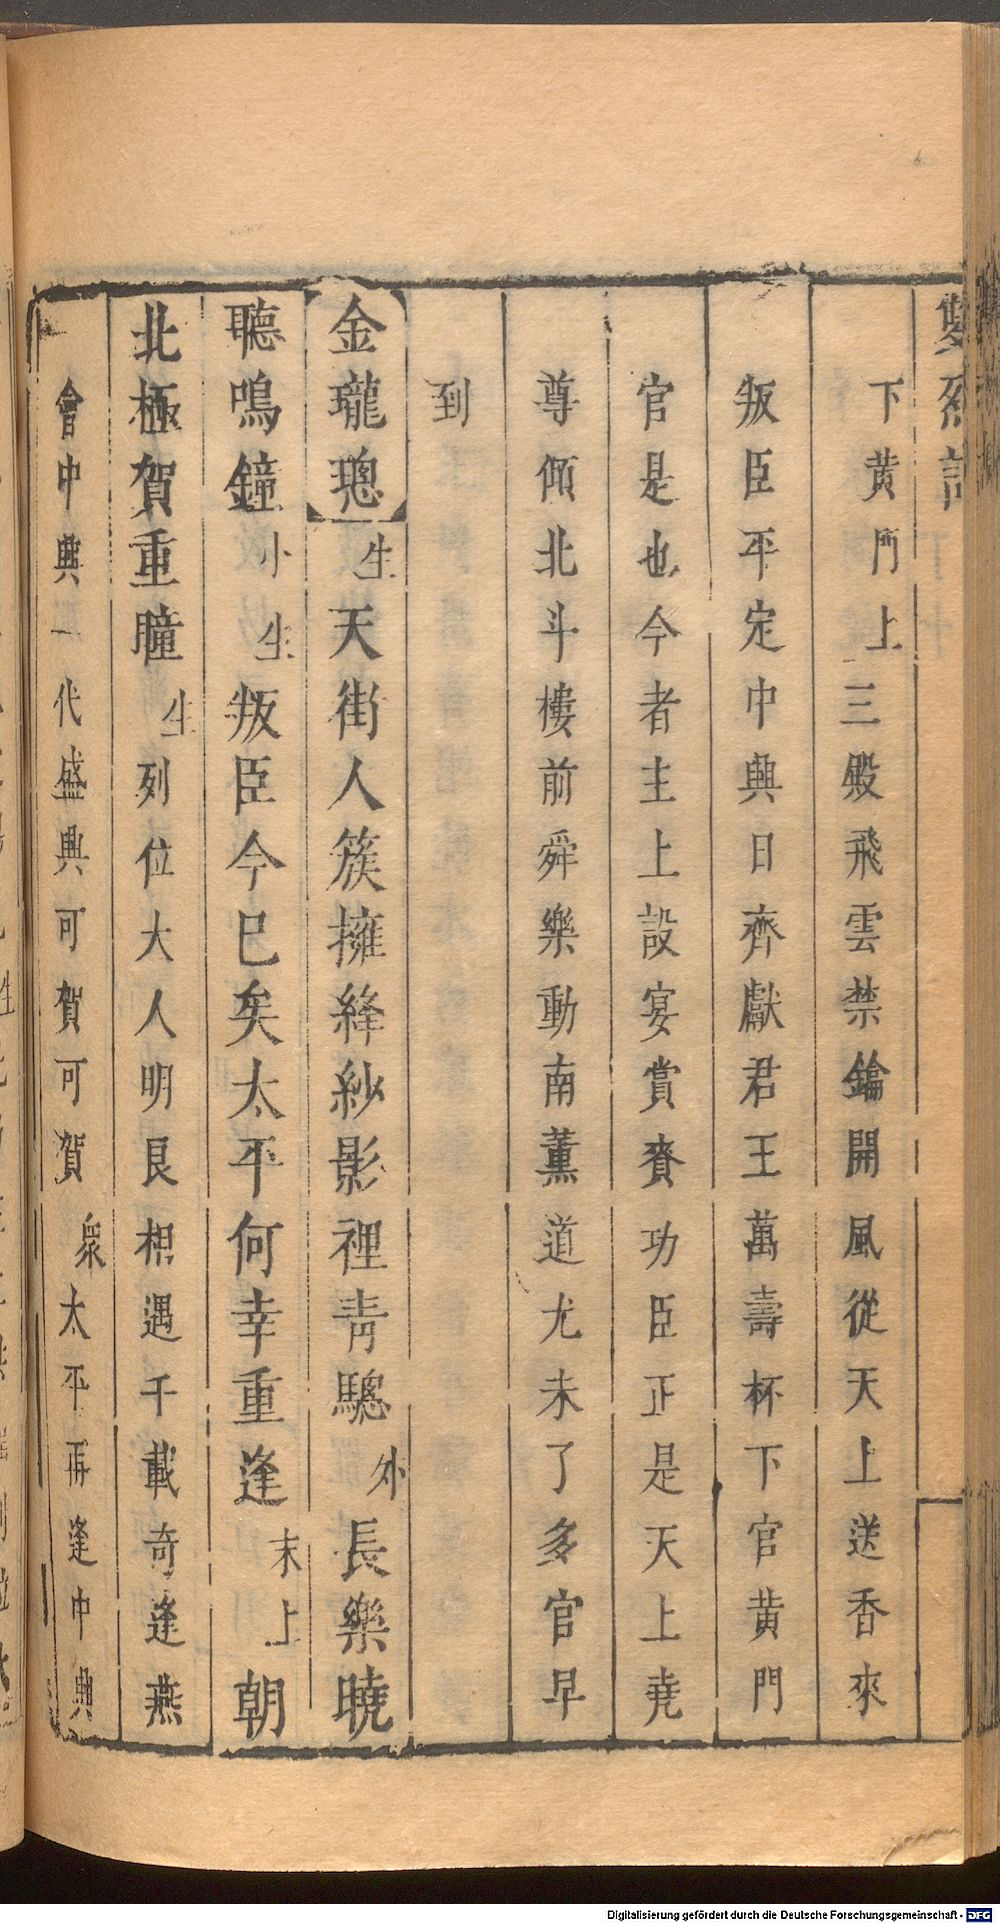 下黄門上三殿飛雲禁鑰開風從天上送香來
叛臣平定中興日齊獻君王萬壽杯下官黄門
官是也今者主上設宴賞賚功臣正是天上堯
尊傾北斗樓前舜樂動南薰道尤未了多官早
到
金瓏璁生天街人簇擁絳紗影裡青驄外長樂曉
聽鳴鐘小生叛臣今巳矣太平何幸重逢末上朝
北極賀重瞳生列位大人明良相遇千載奇逢燕
會中興一代盛興可賀可賀衆太平再逢中興
Digitalisierung gefördert durch die Deutsche Forschungsgemeinschaft - DFG